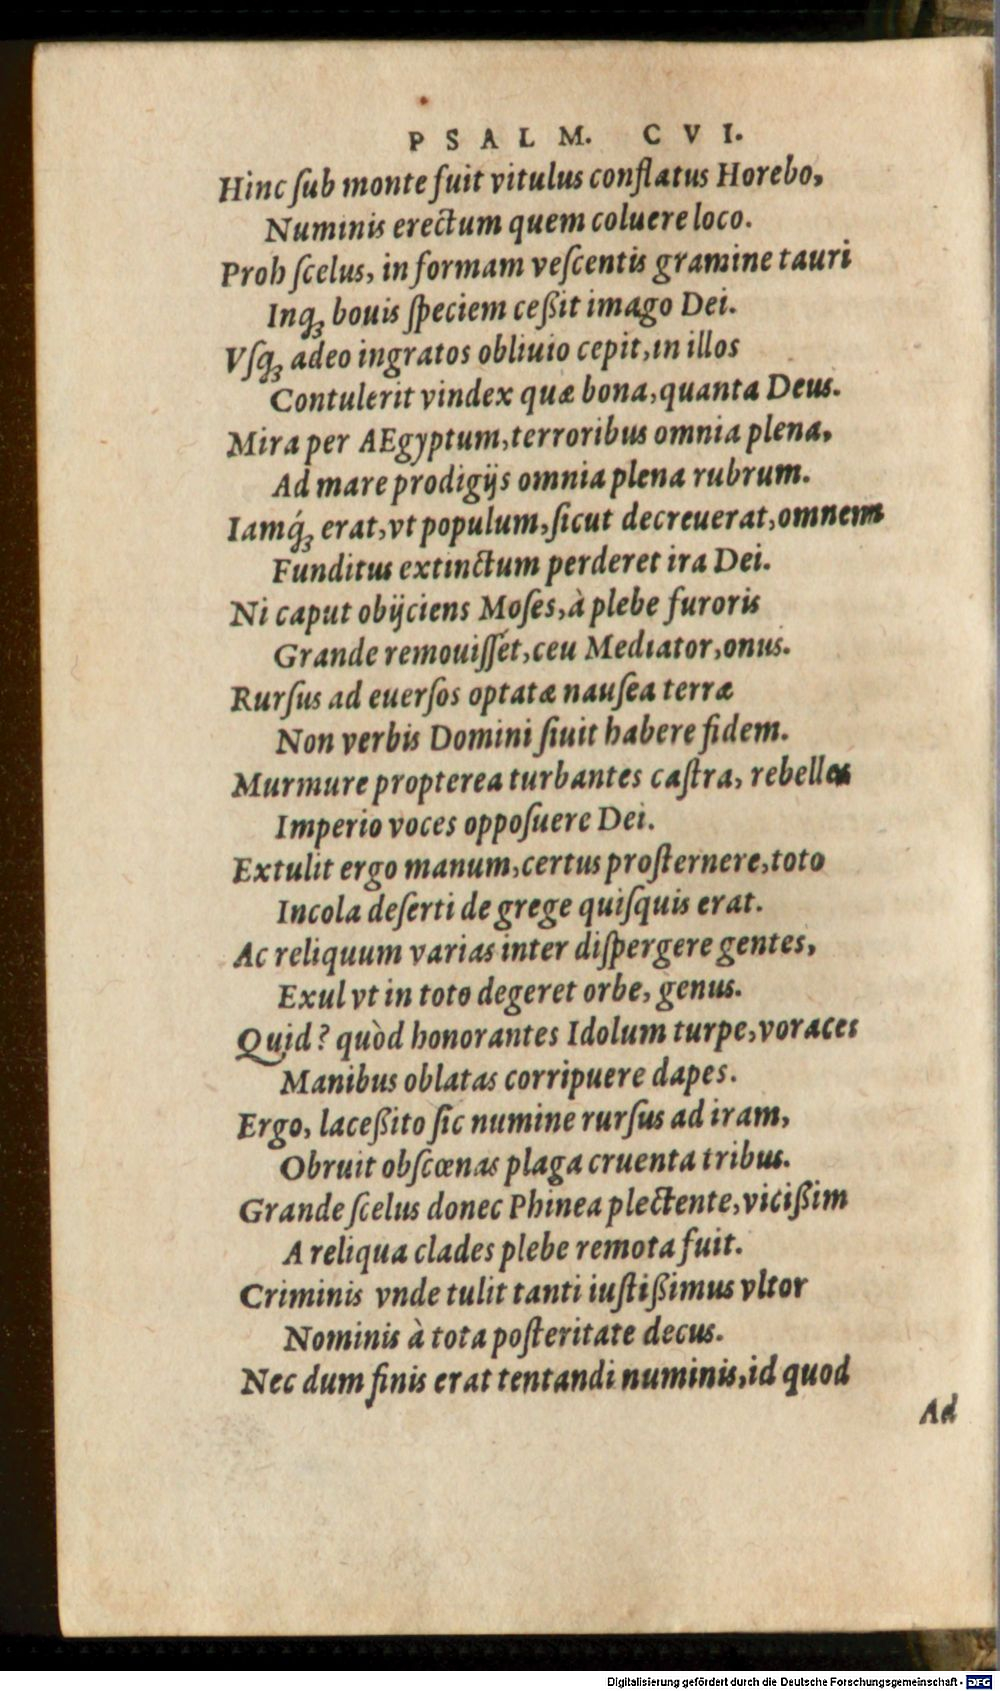 PSALM. CVI.
Hinc ſub monte fuit vitulus conflatus Horebo,
Numinis erectum quem coluere loco.
Proh ſcelus, in formam veſcentis gramine tauri
Inqꝫ bouis ſpeciem ceßit imago Dei.
Vſqꝫ adeo ingratos obliuio cepit, in illos
Contulerit vindex quæ bona, quanta Deus.
Mira per AEgyptum, terroribus omnia plena,
Ad mare prodigijs omnia plena rubrum.
Iamq́ꝫ erat, vt populum, ſicut decreuerat, omnem
Funditus extinctum perderet ira Dei.
Ni caput obijciens Moſes, à plebe furoris
Grande remouiſſét, ceu Mediator, onus.
Rurſus ad euerſos optatæ nauſea terræ
Non verbis Domini ſiuit habere fidem.
Murmure propterea turbantes caſtra, rebelles
Imperio voces oppoſuere Dei.
Extulit ergo manum, certus proſternere, toto
Incola deſerti de grege quiſquis erat.
Ac reliquum varias inter diſpergere gentes,
Exul vt in toto degeret orbe, genus.
Quid? quòd honorantes Idolum turpe, voraces
Manibus oblatas corripuere dapes.
Ergo, laceßito ſic numine rurſus ad iram,
Obruit obſcœnas plaga cruenta tribus.
Grande ſcelus donec Phinea plectente, vicißim
A reliqua clades plebe remota fuit.
Criminis vnde tulit tanti iuſtißimus vltor
Nominis à tota poſteritate decus.
Nec dum finis erat tentandi numinis, id quod
Ad
Digitalisierung gefördert durch die Deutsche Forschungsgemeinschaft - DFG